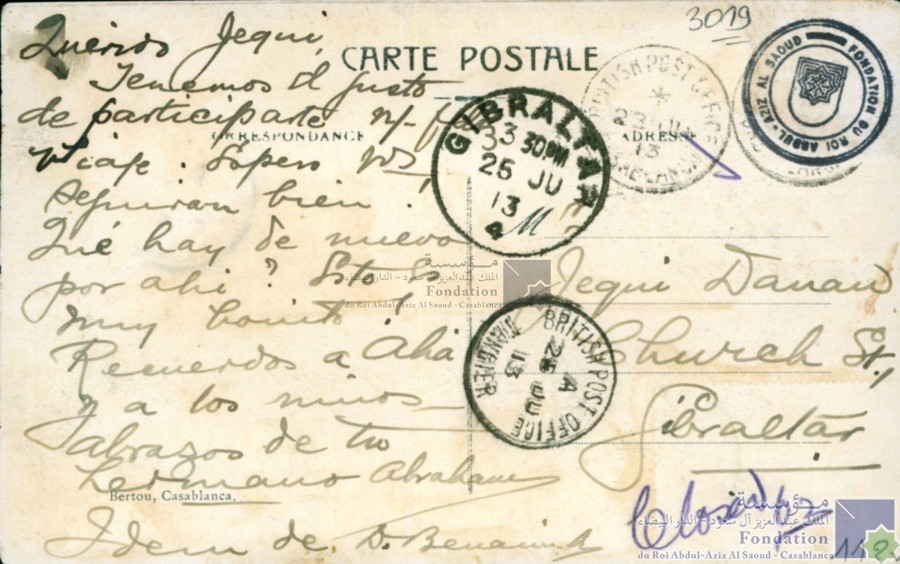 3019
CARTE POSTALE
CORRESPONDANCE
ADRESSE
Querido Jequi,
Tenemos el gusto
de participarte n/
viaje. Espero
seguiran bien!
Qué hay de nuevo
por ahi? Esto es
muy bonito!
Recuerdos a Alia
y a los niños
abrazos de tu
hermano Abraham
Bertou, Casablanca.
Idem de D.
GIBRALTAR
33 30PM
26 JU
13
4
M
BRITISH POST OFFICE
13
BRITISH POST OFFICE
A
25 JU
13
TANGIER
FONDATION DU ROI ABDUL-AZIZ AL SAOUD
Jequi Danan
Church St,
Gibraltar
مؤسسة
الملك عبدالعزيز آل سعود - الدار البيضاء
Fondation
du Roi Abdul-Aziz Al Saoud - Casablanca
مؤسسة
الملك عبدالعزيز آل سعود - الدار البيضاء
Fondation
du Roi Abdul-Aziz Al Saoud - Casablanca